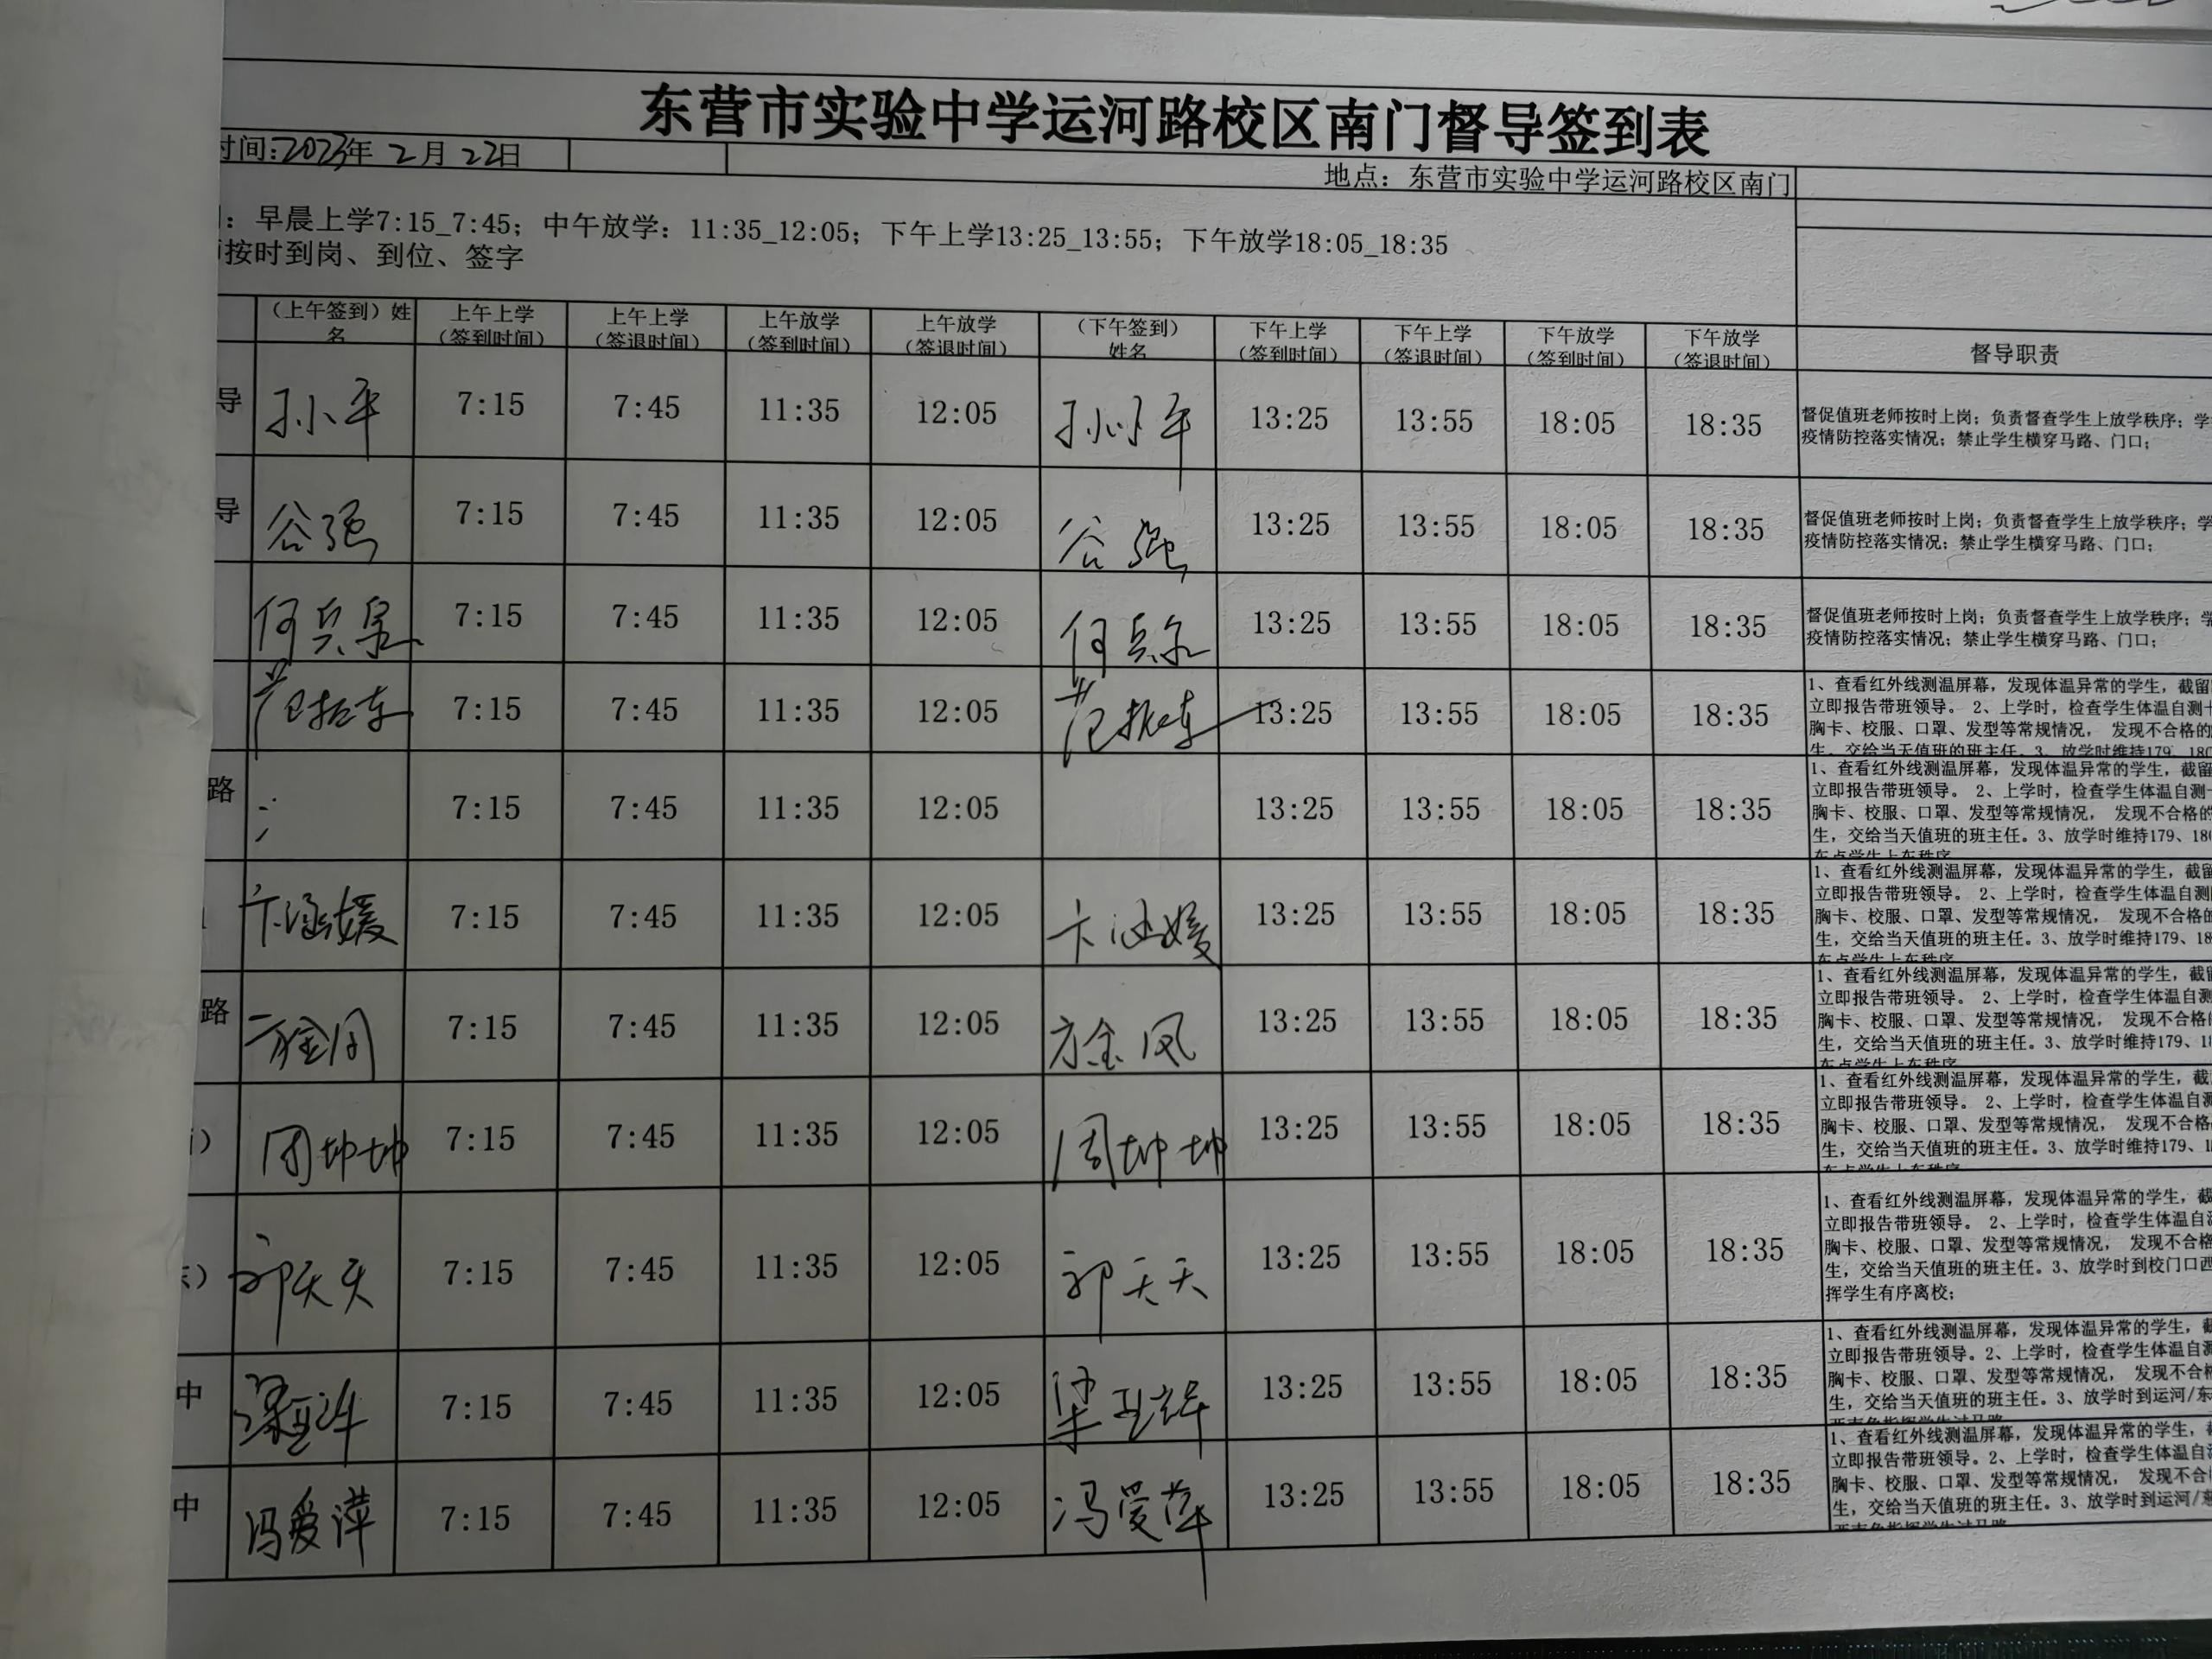 东营市实验中学运河路校区南门督导签到表
时间:2023年 2月 22日
地点: 东营市实验中学运河路校区南门
: 早晨上学7:15_7:45; 中午放学: 11:35_12:05; 下午上学13:25_13:55; 下午放学18:05_18:35
按时到岗、到位、签字
(上午签到)姓名 上午上学(签到时间) 上午上学(签退时间) 上午放学(签到时间) 上午放学(签退时间) (下午签到)姓名 下午上学(签到时间) 下午上学(签退时间) 下午放学(签到时间) 下午放学(签退时间) 督导职责
导 孙小平 7:15 7:45 11:35 12:05 孙小平 13:25 13:55 18:05 18:35 督促值班老师按时上岗; 负责督查学生上放学秩序; 学
疫情防控落实情况; 禁止学生横穿马路、门口;
导 谷强 7:15 7:45 11:35 12:05 谷强 13:25 13:55 18:05 18:35 督促值班老师按时上岗; 负责督查学生上放学秩序; 学
疫情防控落实情况; 禁止学生横穿马路、门口;
何兵泉 7:15 7:45 11:35 12:05 何兵泉 13:25 13:55 18:05 18:35 督促值班老师按时上岗; 负责督查学生上放学秩序; 学
疫情防控落实情况; 禁止学生横穿马路、门口;
范振东 7:15 7:45 11:35 12:05 范振东 13:25 13:55 18:05 18:35 1、查看红外线测温屏幕, 发现体温异常的学生, 截留
立即报告带班领导。 2、上学时, 检查学生体温自测卡
胸卡、校服、口罩、发型等常规情况, 发现不合格的
生, 交给当天值班的班主任。3、放学时维持179、180
路 7:15 7:45 11:35 12:05 13:25 13:55 18:05 18:35 1、查看红外线测温屏幕, 发现体温异常的学生, 截留
立即报告带班领导。 2、上学时, 检查学生体温自测
胸卡、校服、口罩、发型等常规情况, 发现不合格的
生, 交给当天值班的班主任。3、放学时维持179、180
车点学生上车秩序
卞涵媛 7:15 7:45 11:35 12:05 卞涵媛 13:25 13:55 18:05 18:35 1、查看红外线测温屏幕, 发现体温异常的学生, 截留
立即报告带班领导。 2、上学时, 检查学生体温自测
胸卡、校服、口罩、发型等常规情况, 发现不合格的
生, 交给当天值班的班主任。3、放学时维持179、18
车点学生上车秩序
路 方金凤 7:15 7:45 11:35 12:05 方金凤 13:25 13:55 18:05 18:35 1、查看红外线测温屏幕, 发现体温异常的学生, 截
立即报告带班领导。 2、上学时, 检查学生体温自测
胸卡、校服、口罩、发型等常规情况, 发现不合格的
生, 交给当天值班的班主任。3、放学时维持179、18
车点学生上车秩序
) 周坤坤 7:15 7:45 11:35 12:05 周坤坤 13:25 13:55 18:05 18:35 1、查看红外线测温屏幕, 发现体温异常的学生, 截
立即报告带班领导。 2、上学时, 检查学生体温自测
胸卡、校服、口罩、发型等常规情况, 发现不合格
生, 交给当天值班的班主任。3、放学时维持179、1
车点学生上车秩序
) 祁天天 7:15 7:45 11:35 12:05 祁天天 13:25 13:55 18:05 18:35 1、查看红外线测温屏幕, 发现体温异常的学生, 截
立即报告带班领导。 2、上学时, 检查学生体温自
胸卡、校服、口罩、发型等常规情况, 发现不合格
生, 交给当天值班的班主任。3、放学时到校门口西
挥学生有序离校;
中 梁亚祥 7:15 7:45 11:35 12:05 梁亚祥 13:25 13:55 18:05 18:35 1、查看红外线测温屏幕, 发现体温异常的学生,
立即报告带班领导。2、上学时, 检查学生体温自测
胸卡、校服、口罩、发型等常规情况, 发现不合格
生, 交给当天值班的班主任。3、放学时到运河/东
西南角指挥学生过马路
中 冯爱萍 7:15 7:45 11:35 12:05 冯爱萍 13:25 13:55 18:05 18:35 1、查看红外线测温屏幕, 发现体温异常的学生,
立即报告带班领导。2、上学时, 检查学生体温自
胸卡、校服、口罩、发型等常规情况, 发现不合
生, 交给当天值班的班主任。3、放学时到运河/
西南角指挥学生过马路